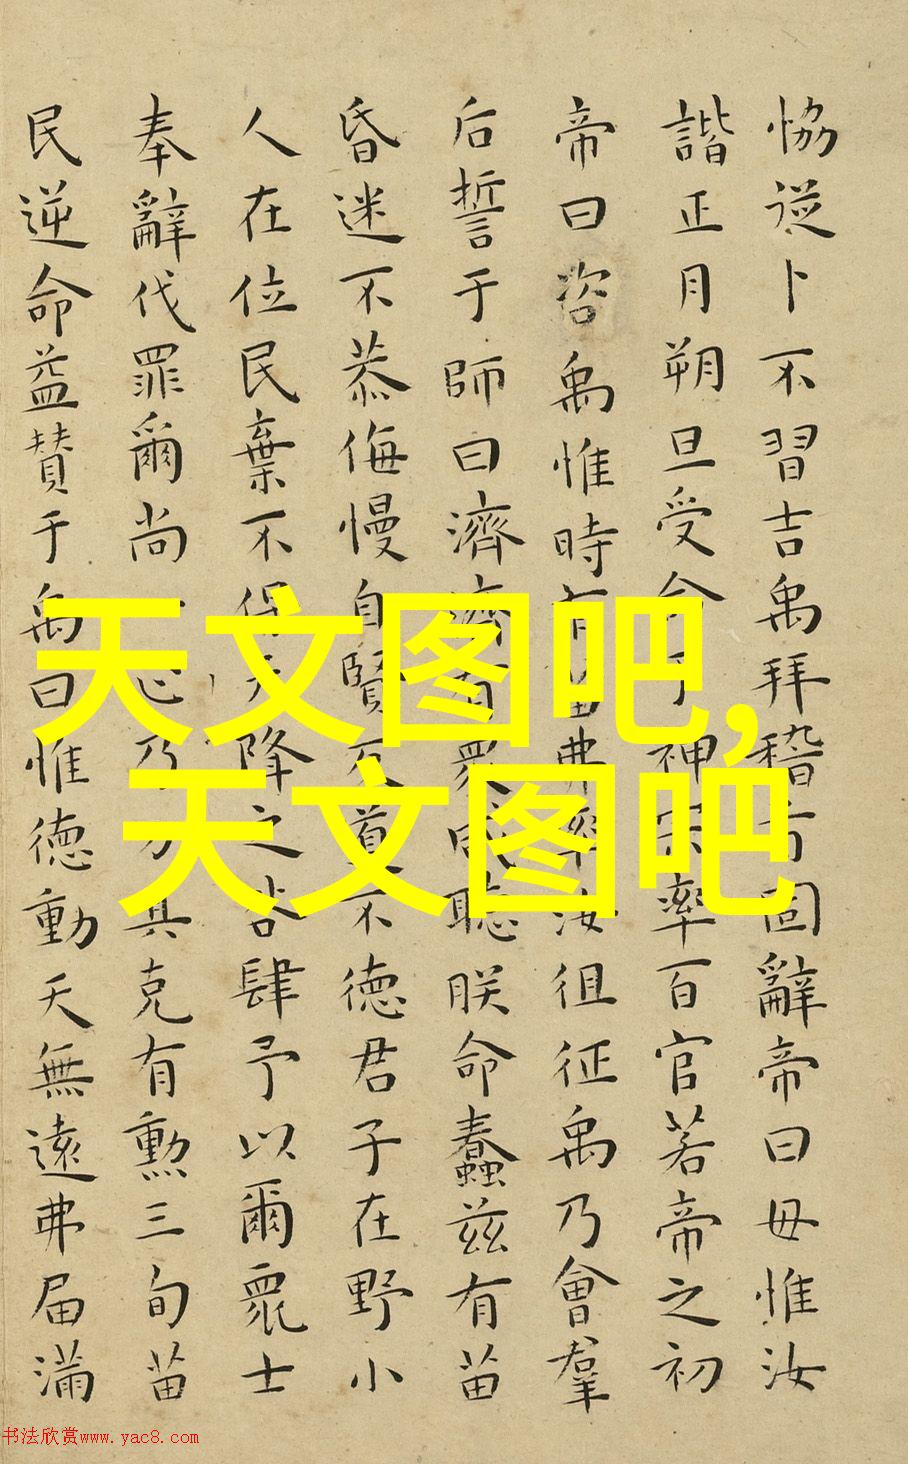 恊從卜不習吉禹拜稽首固辭帝曰毋惟汝
諧正月朔旦受命于神宗率百官若帝之初
帝曰咨禹惟時有苗弗率汝徂征禹乃會羣
后誓于師曰濟濟有衆咸聽朕命蠢兹有苗
昏迷不恭侮慢自賢反道不徳君子在野小
人在位民棄不保天降之咎肆予以爾衆士
奉辭伐罪爾尚一心乃力其克有勲三旬苗
民逆命益賛于禹曰惟徳動天無遠弗届滿
天文图吧,
天文图吧
书法欣赏www.yac8.com